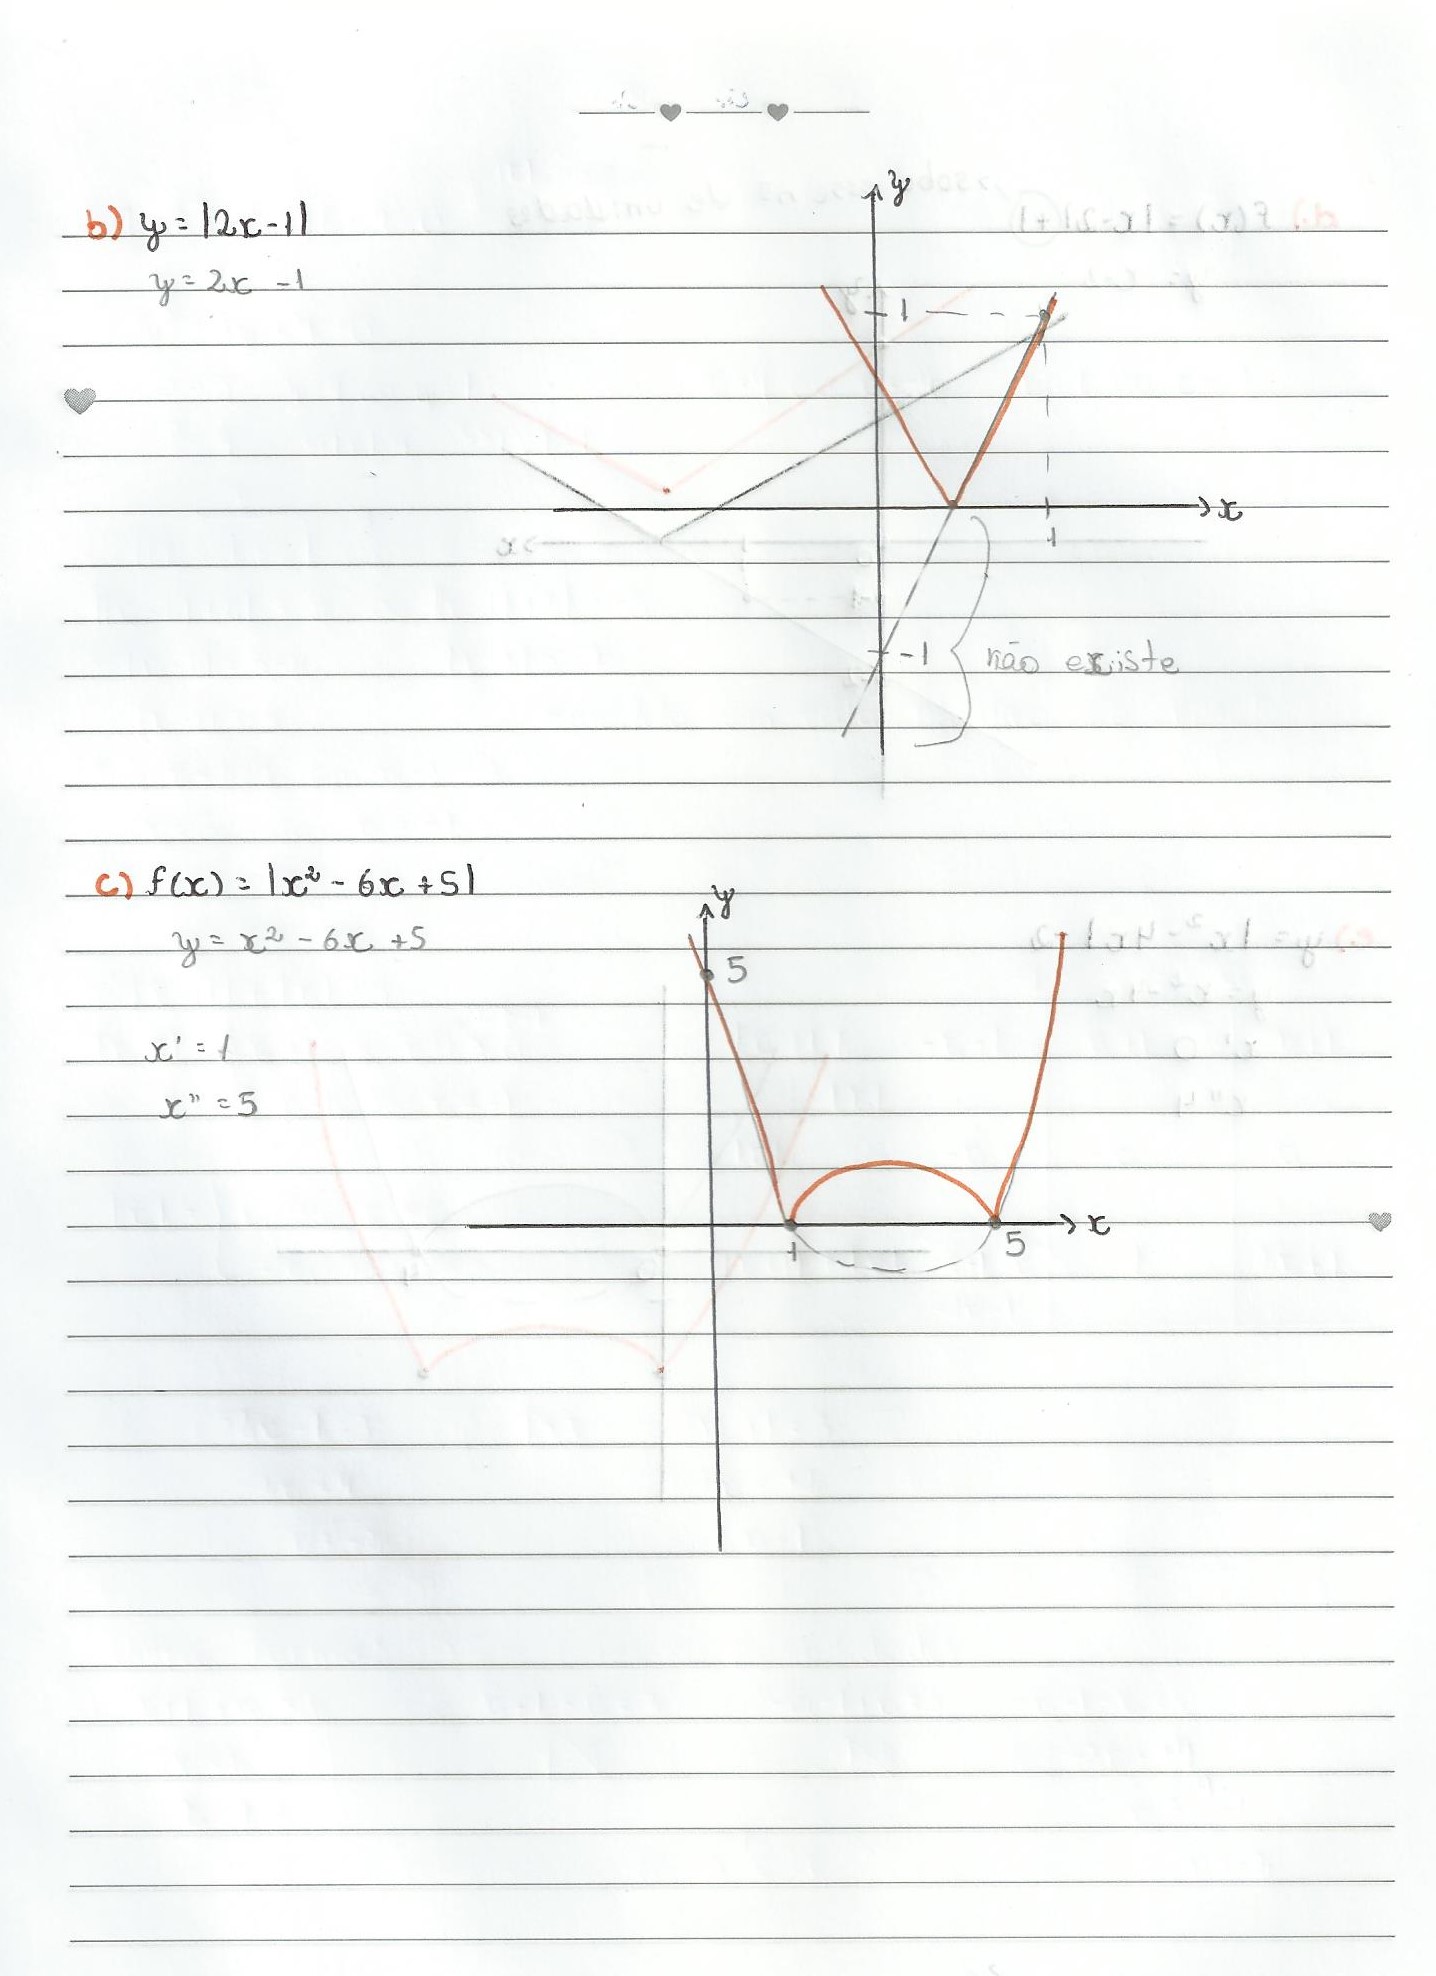 b) y = |2x - 1|
y = 2x - 1
y
1
x
1
-1
não existe
c) f(x) = |x² - 6x + 5|
y = x² - 6x + 5
x' = 1
x'' = 5
y
5
x
1
5